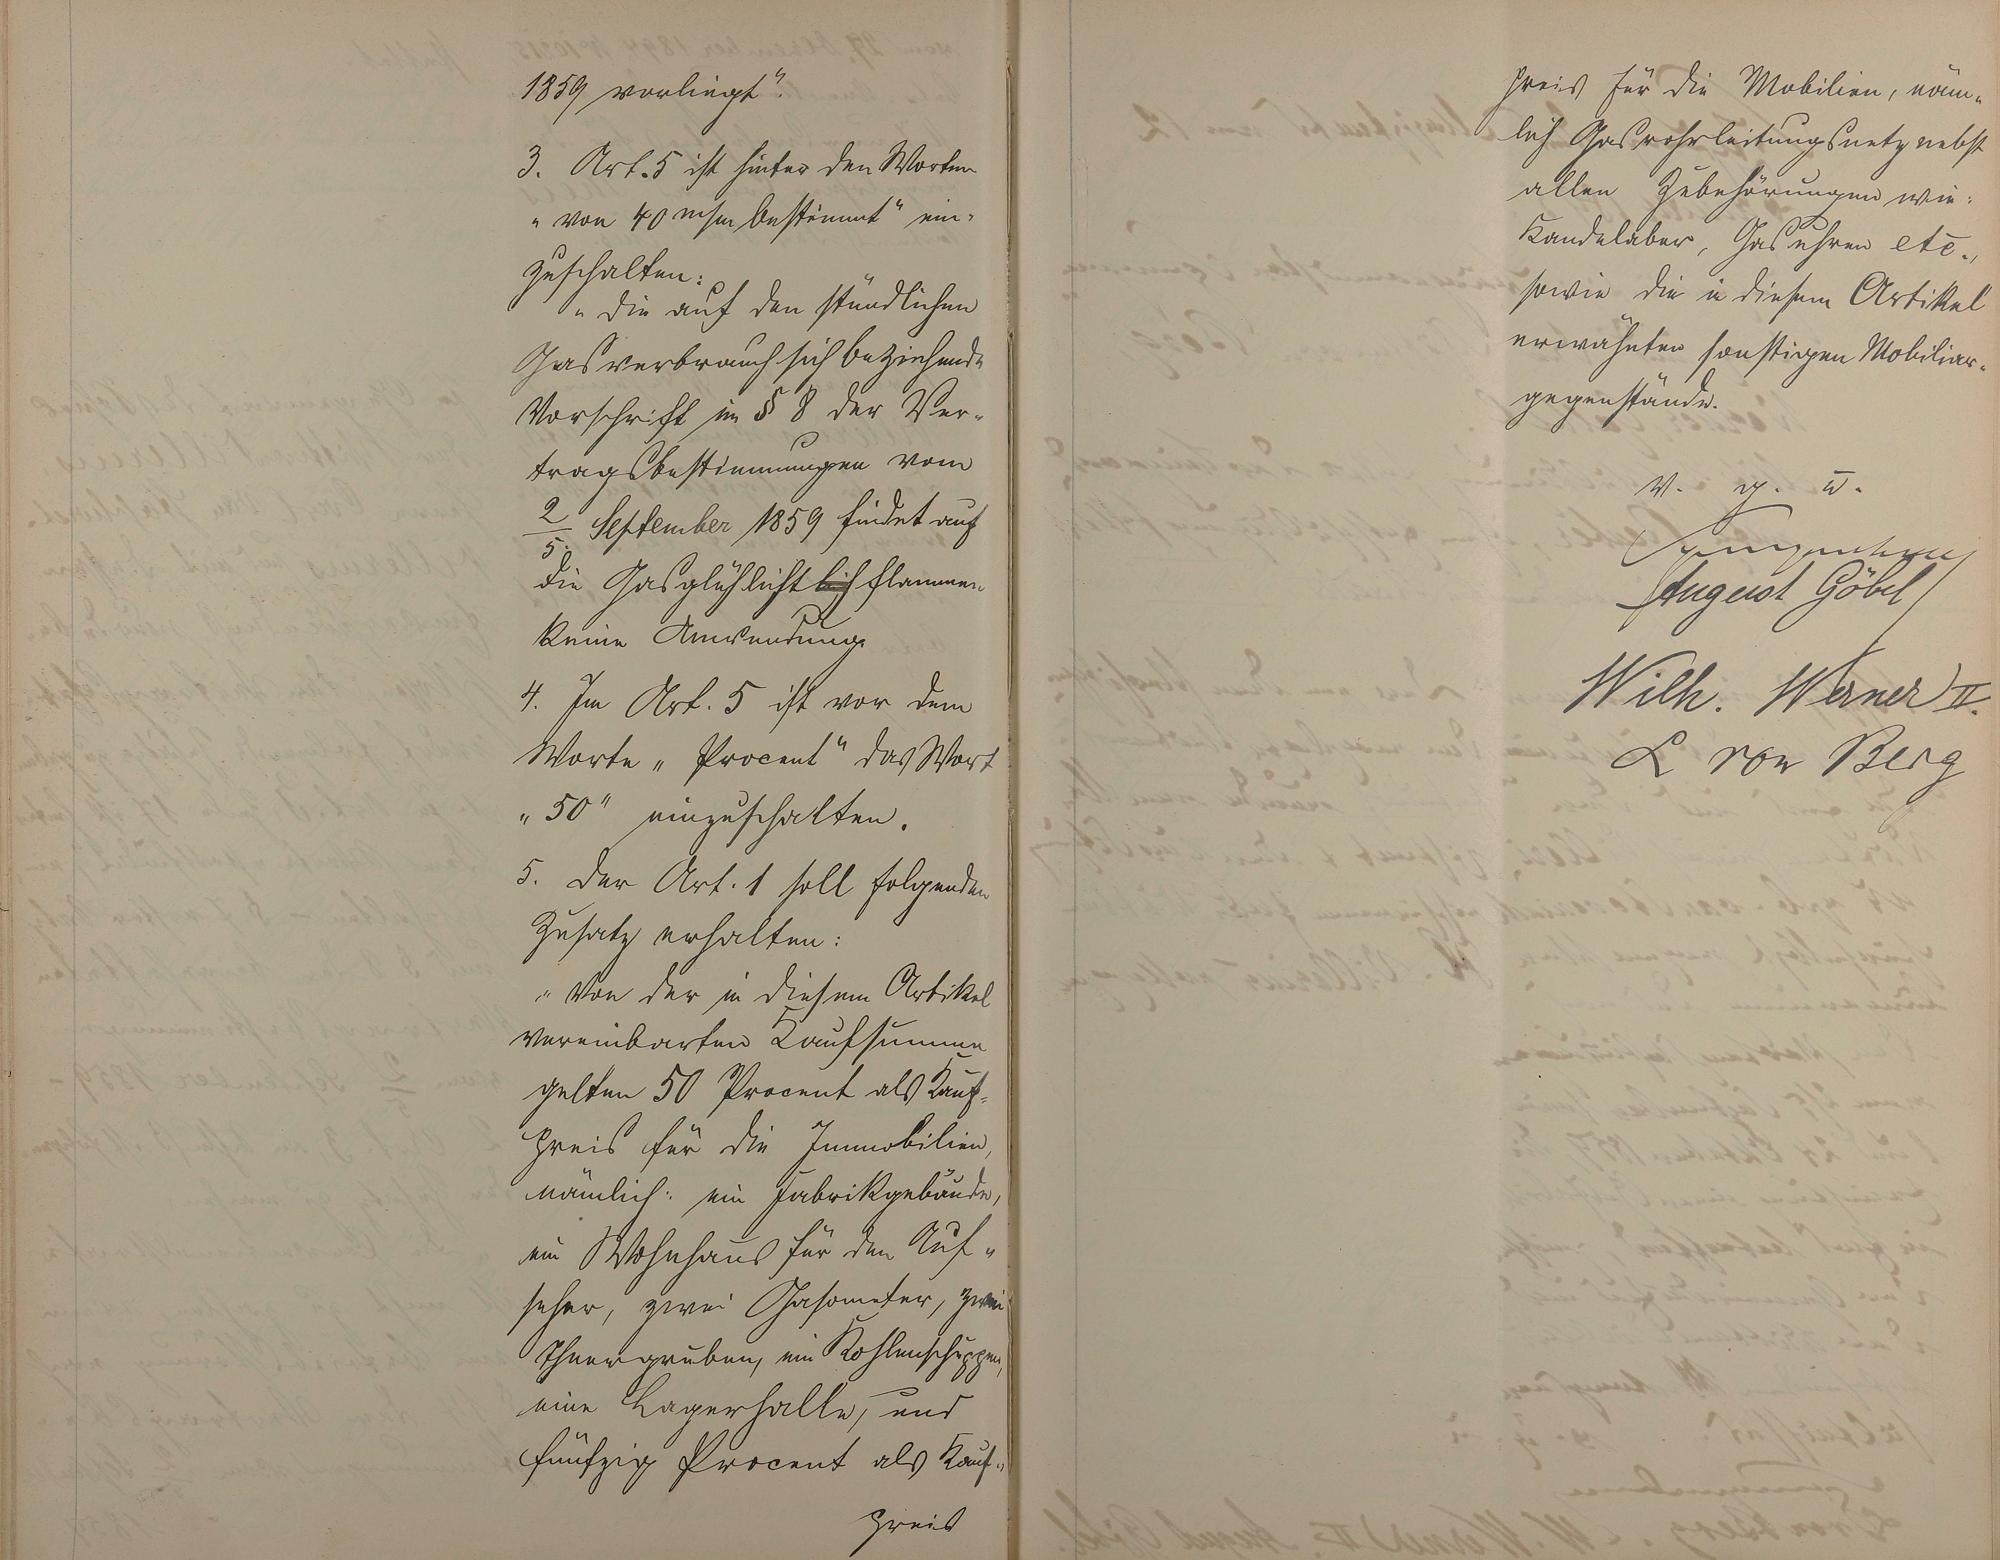 1859 vorliegt".
3. Art. 5 ist hinter den Worten
"von 40 m/m bestimmt" ein-
zuschalten:
"die auf den stündlichen
Gasverbrauch sich beziehende
Vorschrift in § 8 der Ver-
tragsbestimmungen vom
2/5. September 1859 findet auf
die Gasglühlicht flammen
keine Anwendung.
4. Im Art. 5 ist vor dem
Worte "Procent" das Wort
"50" einzuschalten.
5. Der Art. 1 soll folgenden
Zusatz erhalten:
"Von der in diesem Artikel
vereinbarten Kaufsumme
gelten 50 Procent als Kauf-
preis für die Immobilien,
nämlich: ein Fabrikgebäude,
ein Wohnhaus für den Auf-
seher, zwei Gasometer, zwei
Theergruben, ein Kohlenschuppen,
eine Lagerhalle, und
fünfzig Procent als Kauf-
preis
preis für die Mobilien, näm-
lich Gasrohrleitungsnetz nebst
allen Zubehörungen wie:
Kandelaber, Gasuhren etc.,
sowie die in diesem Artikel
erwähnten sonstigen Mobiliar-
gegenstände.
v. g. u.
August Göbel
Wilh. Werner II.
L von Berg